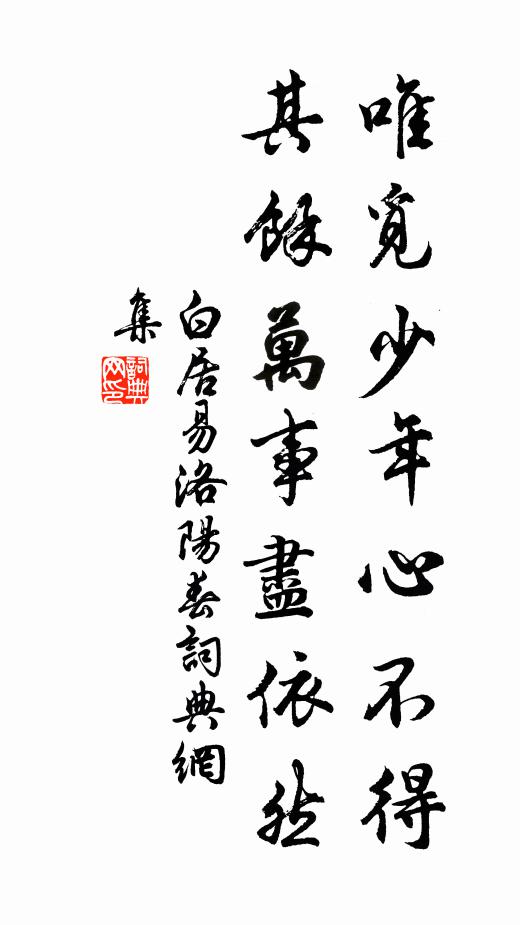 唯覓少年心不得
其餘萬事盡依然
白居易洛陽春詞典網
集
詞典
网印